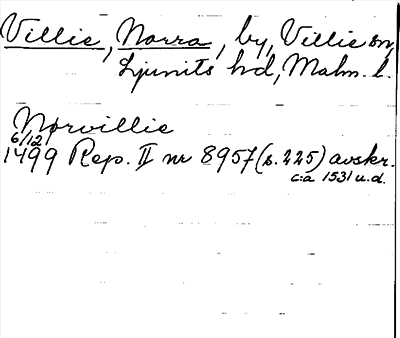 Villie, Norra, by, Villie sn,
Ljunits hd, Malm. l.
Norvillie
6/12
1499 Rep. II nr 8957 (s. 225) avskr.
c:a 1531 u.d.